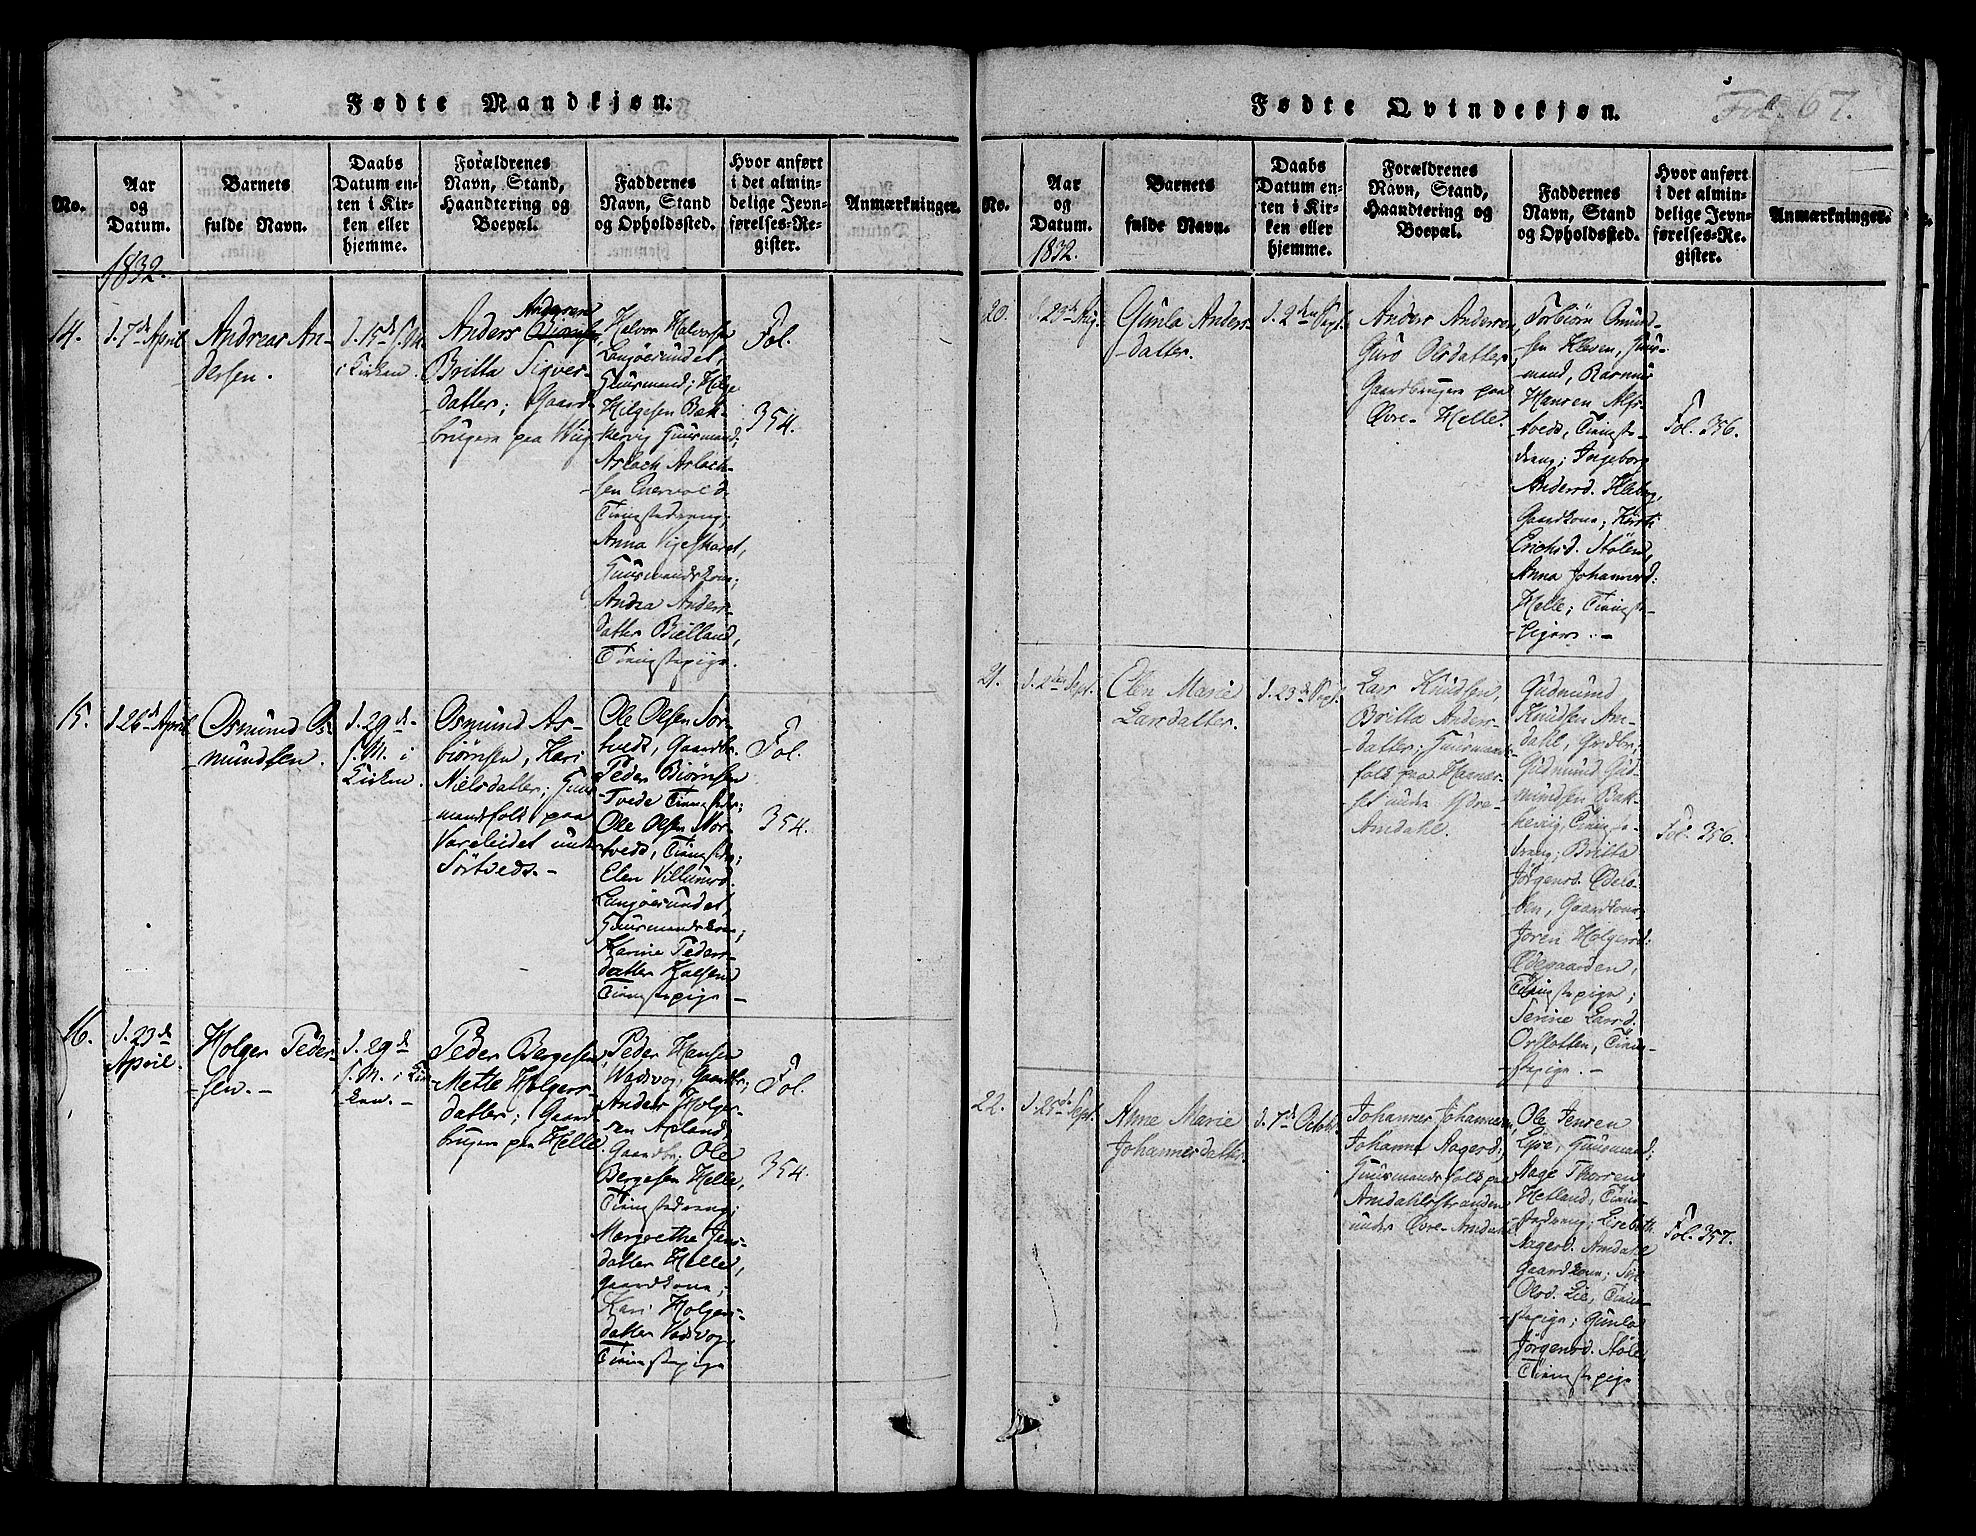 Fødte Mandkjøn.
No.
Aar
og
Datum.
1832.
Barnets
fulde Navn.
Daabs
Datum en-
ten i Kir-
ken eller
hjemme.
Forældrenes
Navn, Stand,
Haandtering og
Boepæl.
Faddernes
Navn, Stand
og Opholdssted.
Hvor anført
i det almin-
delige Jevn-
førelses-Re-
gister.
Anmærkninger.
14.
d. 7de April
Andreas An-
dersen.
d. 15de
i Kirken.
Andersen
Anders
Britta Siqver-
datter; Gaard-
brugere paa Wiig
Halvor Halvorsen
Langøesundet,
Huusmand; Helge
Helgesen Bak-
kevig Huusmand;
Aslach Aslach-
sen
Tienestedreng;
Anna Vigeskaret,
Huusmandskone;
Andrea Anders-
datter Bielland,
Tienestepige.
Fol.
354.
15.
d. 26de April
Osmund Os-
mundsen.
d. 29de
s. M. i
Kirken.
Osmund As-
biørnsen, Kari
Nielsdatter; Huus-
mandsfolk paa
Vareleidet under
Törtveds. -
Ole Olsen Tor-
tvedt, Gaardbr;
Peder Biørnsen
Tvede Tienestedr;
Ole Olsen Tor-
tvedt, Tienestedr;
Elen Villumsd.
Langöesundet,
Huusmandskone;
Karine Peders-
datter Kalsend
Tienestepige -
Fol.
354.
16.
d. 23de
April.
Holger Peder-
sen. -
d. 29de
s. M. i Kir-
ken. -
Peder Bergesen,
Mette Holgers-
datter; Gaard-
brugere paa Helle.
Peder Hansen
Wadsvog, Gaardbr;
Anders Holger-
sen Apland,
Gaardbr; Ole
Bergesen Helle,
Tienestedreng;
Margrethe Jens-
datter Helle,
Gaardkone;
Kari Holgers-
datter Vadsvog,
Tienestepige
Fol.
354.
Fødte Qvindekjøn.
Fol. 67.
No.
Aar
og
Datum.
1832.
Barnets
fulde Navn.
Daabs
Datum en-
ten i Kir-
ken eller
hjemme.
Forældrenes
Navn, Stand,
Haandtering og
Boepæl.
Faddernes
Navn, Stand
og Opholdssted.
Hvor anført
i det almin-
delige Jevn-
førelses-Re-
gister.
Anmærkninger.
20.
d. 29de Aug.
Gunla Anders-
datter.
d. 2den Sept.
Anders Andersen,
Guro Olsdatter,
Gaardbrugere paa
Øvre-Helle.
Torbiørn Omund-
sen Kleven, Huus-
mand, Rasmus
Hansen Alfs-
tvedt, Tieneste-
dreng; Ingeborg
Andersd.
Gaardkone; Kirsti
Erichsd. Stølen,
Anna Johannesd:
Helle; Tieneste-
piger. -
Fol. 356.
21.
d. 2den Sept.
Elen Marie
Larsdatter.
d. 23de Sept.
Lars Knudsen,
Britta Anders-
datter; Huusmands-
folk paa
under Ydre-
Amdahl.
Gudmund
Knudsen Am-
dahl, Grdbr;
Gudmund Gud-
mundsen Bak-
kevig, Tieneste-
dreng; Britta
Jørgensd.
Gaardkone;
Joren Holgersd.
Ødegaarden,
Tienstepige;
Serine Larsd.
Orslotten, Tiene-
stepige. -
Fol. 356.
22.
d. 25de Sept.
Anne Marie
Johannesdatter.
d. 7de Octob.
Johannes Johannesen,
Johanne Aagesd;
Huusmandsfolk paa
Amdahlsstranden
under Øvre-Amdahl
Ole Jensen
Lyre, Huusmand;
Aage Thorsen
Hetland, Tiene-
stedreng; Lisebeth
Aagesd. Amdahl
Gaardkone;
Olsd. Lie, Tiene-
stepige; Gunla
Jørgensd. Støle,
Tienestepige
Fol. 357.